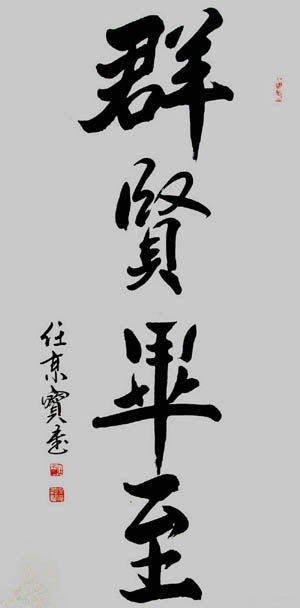 群賢畢至
任京寶書